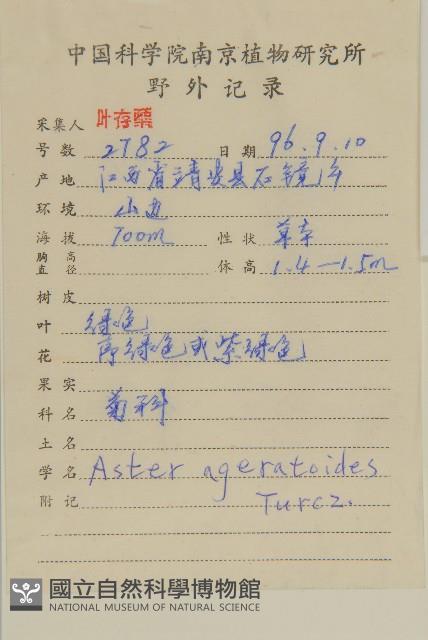 中国科学院南京植物研究所
野外记录
采集人 叶存粟
号数 2782 日期 96.9.10
产地 江西省靖安县石镜
环境 山边
海拔 700m 性状 草本
胸高直径 体高 1.4—1.5m
树皮
叶 绿色
花 绿色或紫绿色
果实
科名 菊科
土名
学名 Aster ageratoides
附记 Turcz.
國立自然科學博物館
NATIONAL MUSEUM OF NATURAL SCIENCE